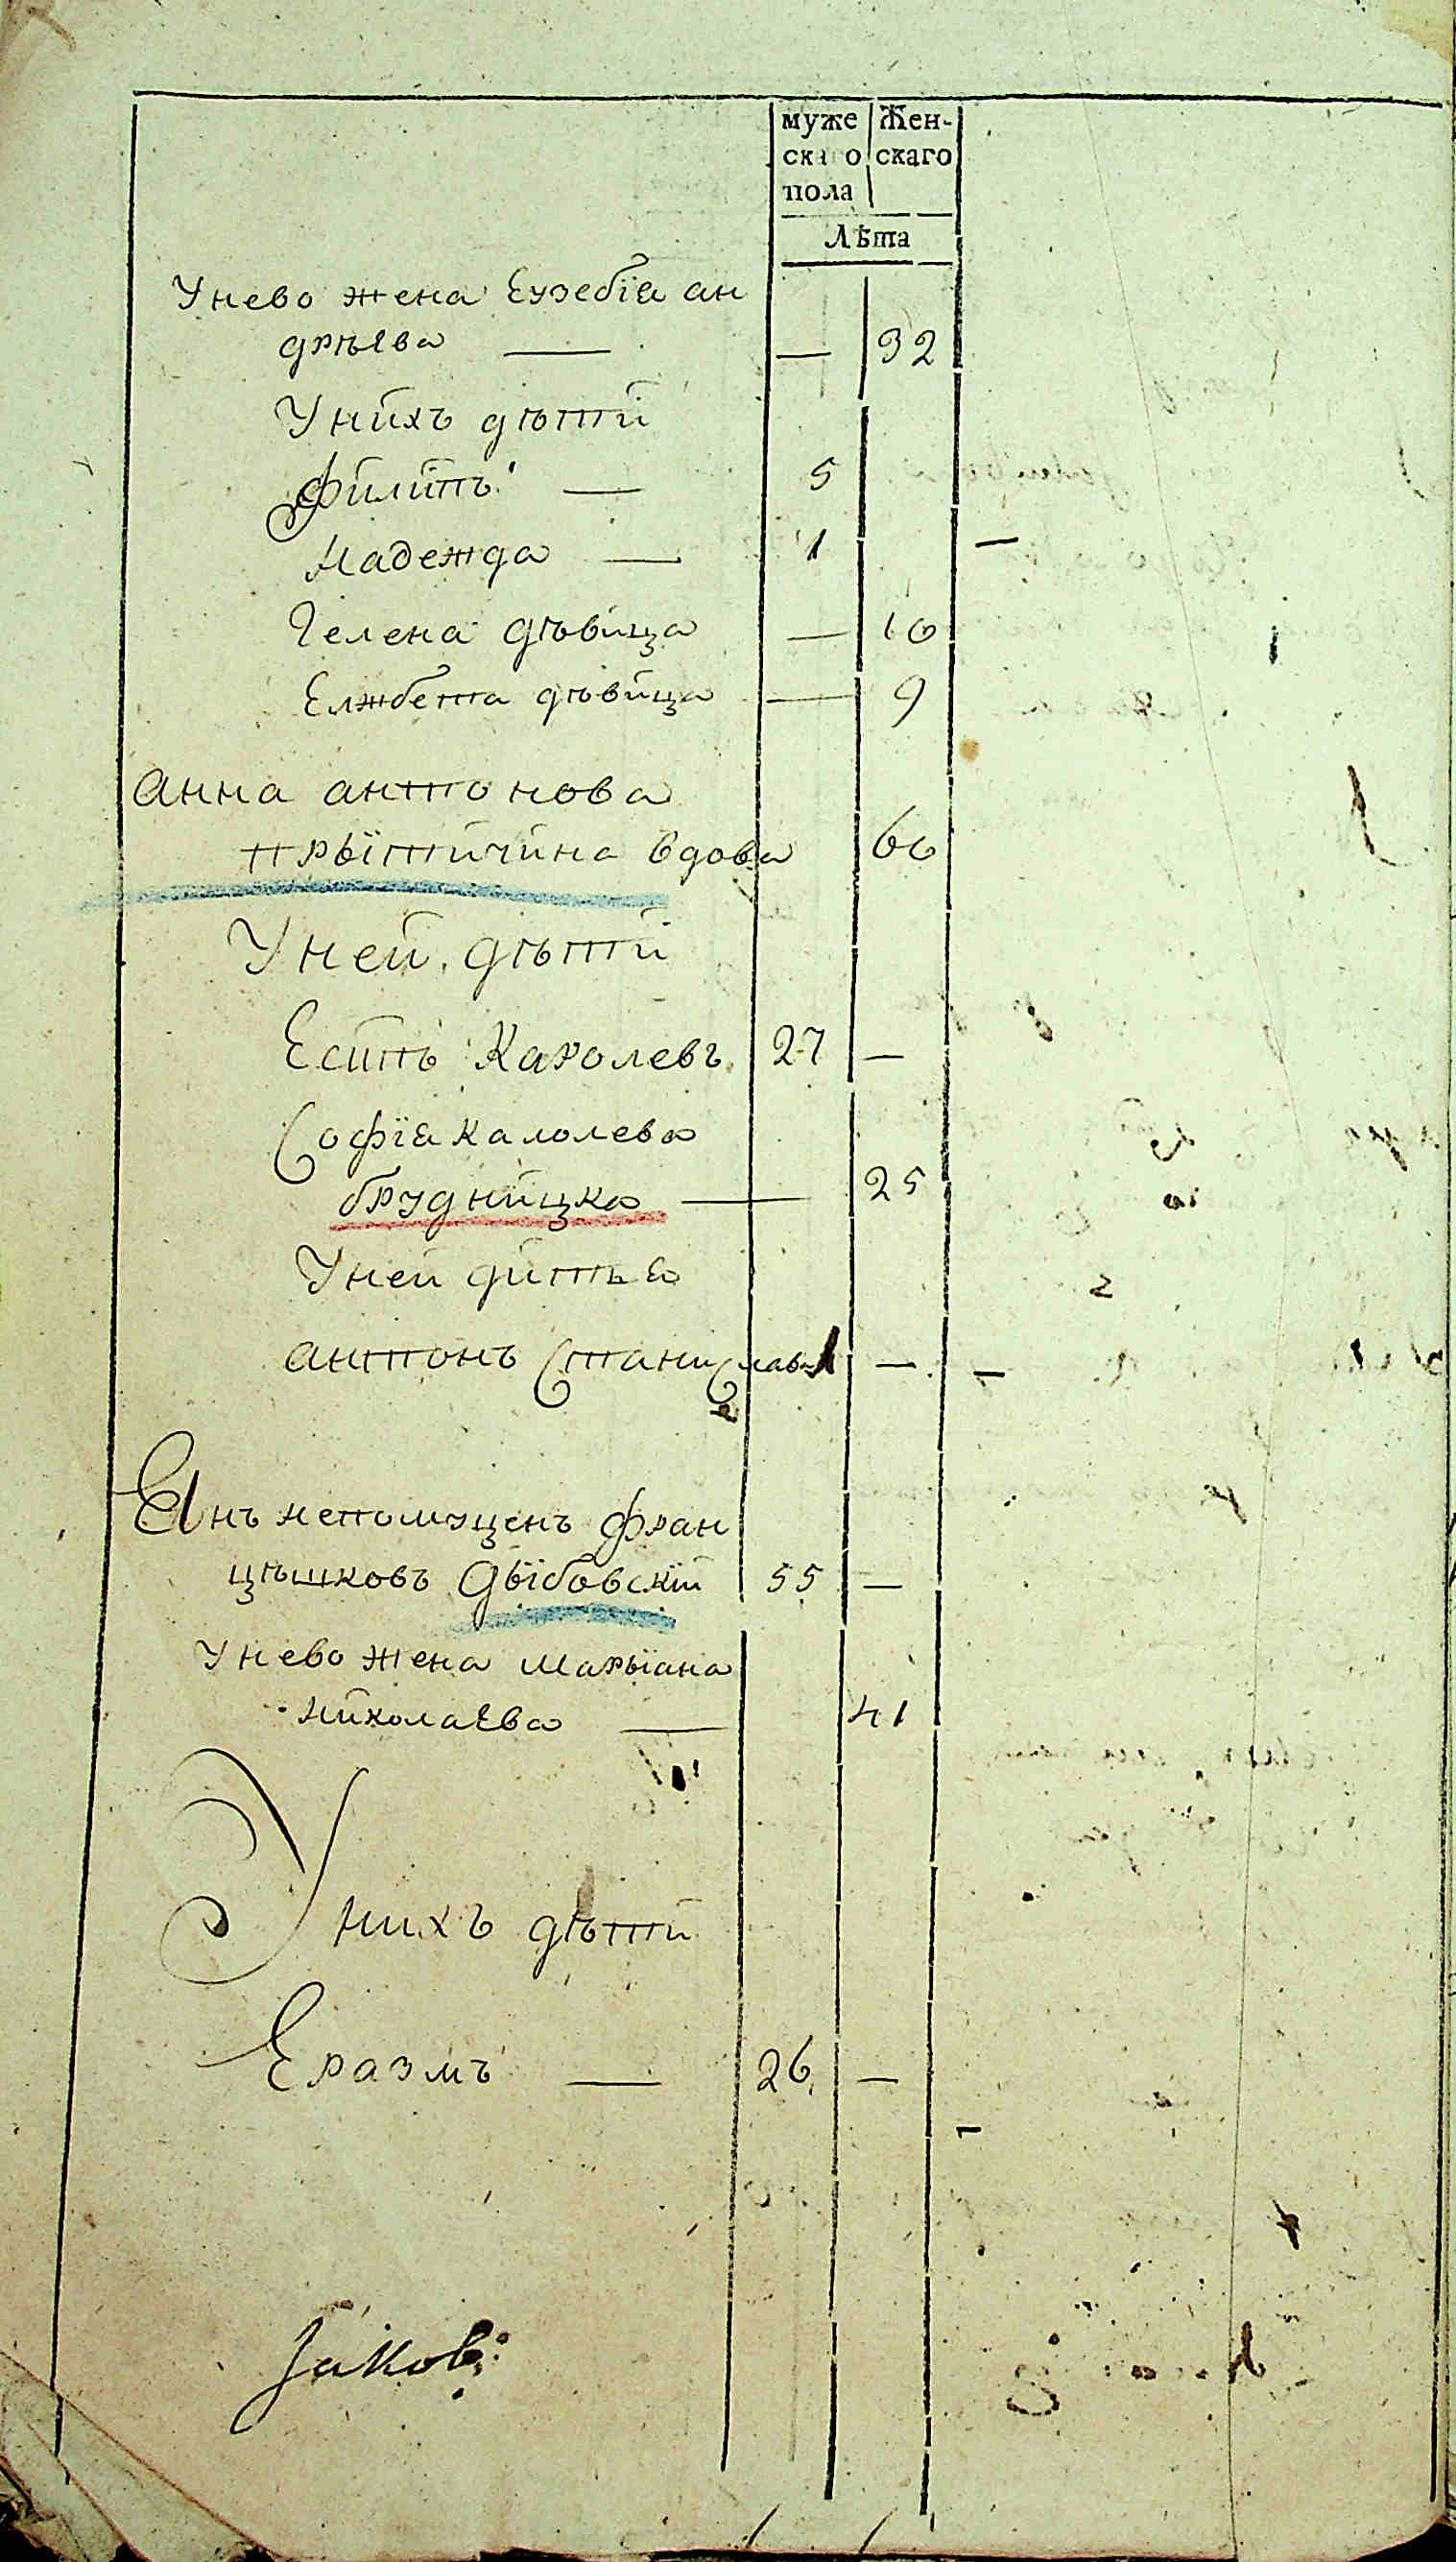 муже Жен-
скаго скаго
пола
Лѣта
Унево жена Еузебїа ан
дрѣева — — 32
Унихъ дѣтй
Филипъ — 5
Надежда — 1
Гелена дѣвица — 10
Елжбета дѣвица — 9
Анна антонова
прыїтичина вдова 60
Уней дѣтй
Есипъ Каролевъ 27 —
Софїа Калолева
брудницка — 25
Уней дитьа
антонъ Станиславъ 1 —
Еянъ непомуценъ фран
цѣшковъ дыїбовскїй 55 —
Унево жена Марыїана
николаева — 41
Унихъ дѣтй
Еразмъ — 26 —
Јаковъ